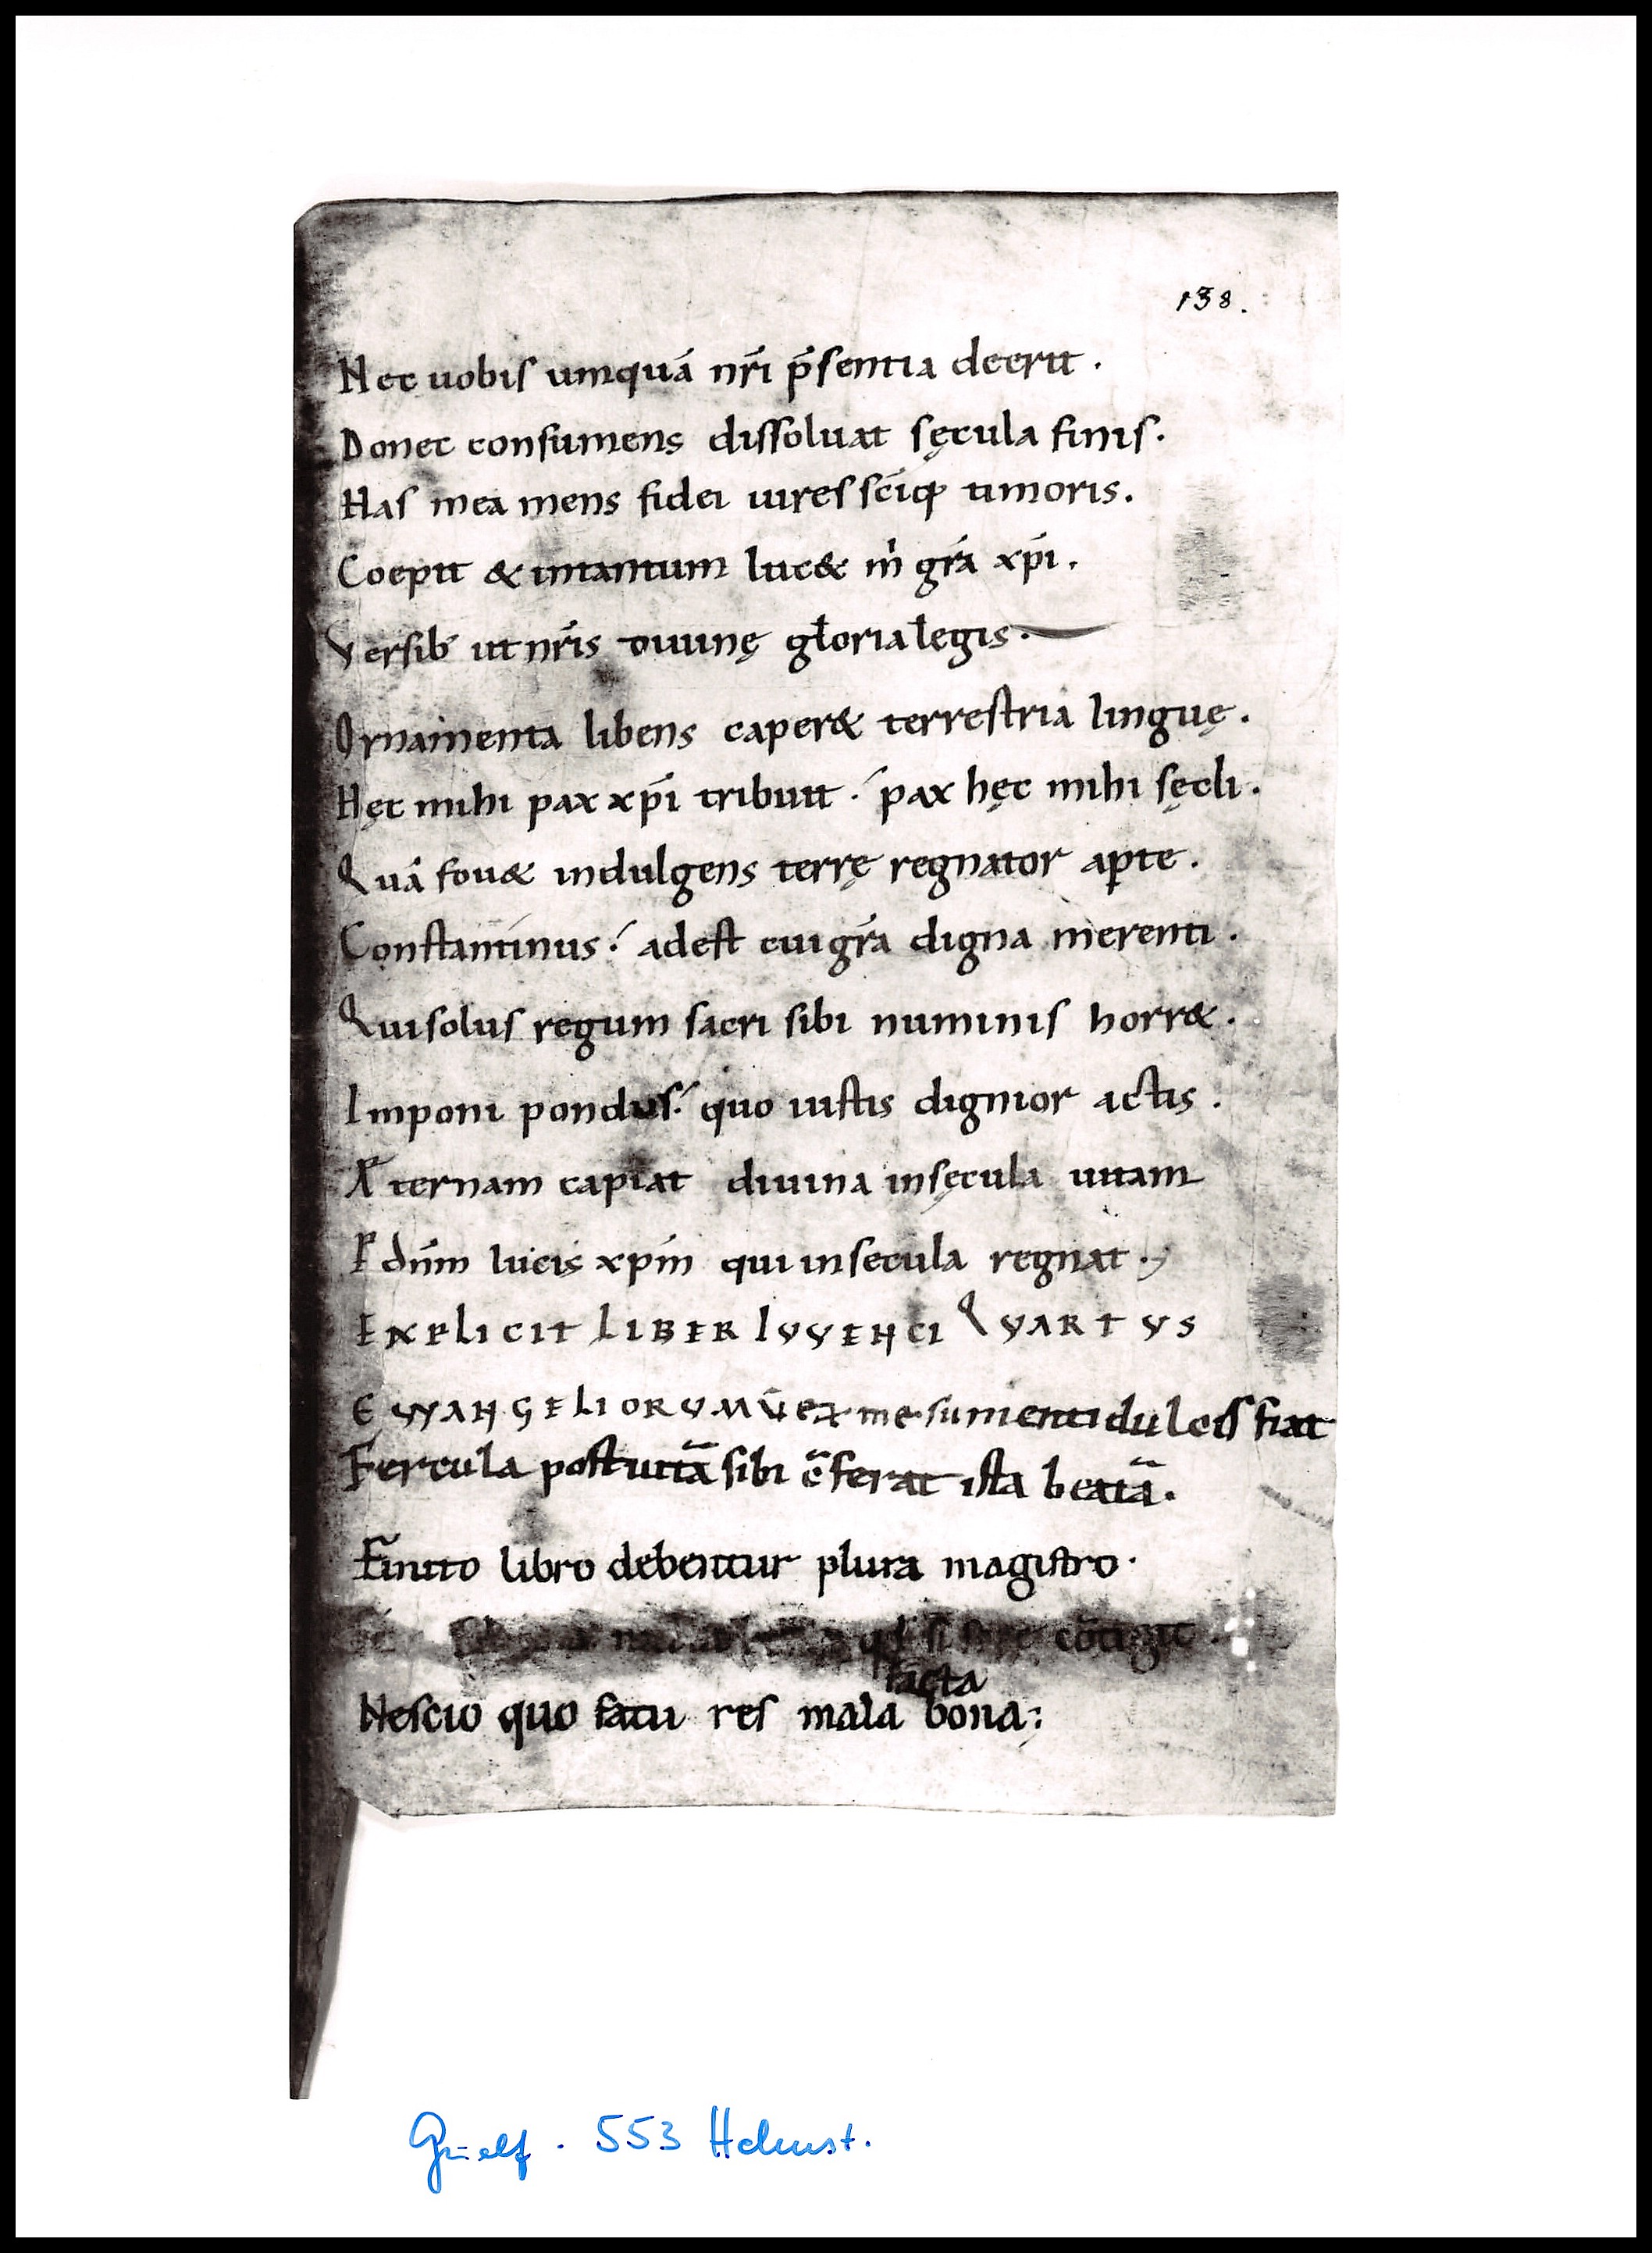 138.
Nec uobis umquā nr̄i p̄sentia deerit.
Donec consumens dissoluat sęcula finis.
Has mea mens fidei uires sc̄iq; timoris.
Coepit & intantum luc& m̍ gr̄a xp̄i.
Versib; ut nr̄is diuinę gloria legis.
Ornamenta libens caper& terrestria linguę.
Hęc mihi pax xp̄i tribuit. pax hęc mihi sęcli.
Quā fou& indulgens terrę regnator ap̱te.
Constantinus. adest cui gr̄a digna merenti.
Qui solus regum sacri sibi numinis horr&.
Imponi pondus. quo iustis dignior actis.
Aeternam capiat diuina insęcula uitam
P dn̄m lucis xp̄m qui insecula regnat.
EXPLICIT LIBER IVVENCI QVARTVS
EVVANGELIORVM ex me sumenti dulcis fiat
Fercula post uitā sibi c̄ferat ista beatā.
Finito libro debentur plura magistro.
cōtigit.
facta
Nescio quo fatu res mala bona;
Guelf. 553 Helmst.